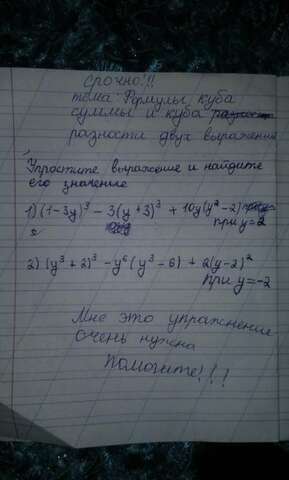 срочно!!!
тема: Формулы куба
суммы и куба
разности двух выражения
Упростите выражение и найдите
его значение
1) (1-3y)³ - 3(y+3)³ + 10y(y²-2)
при y=2
2) (y³+2)³ - y⁶(y³-6) + 2(y-2)²
при y=-2
Мне это упражнение
очень нужна
Помогите!!!